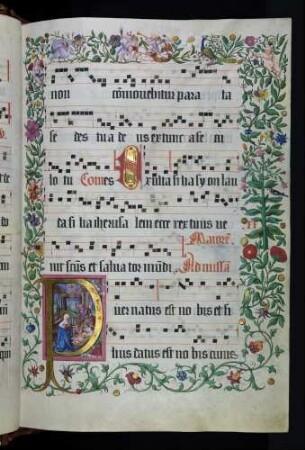 non cōmovebitur para ta
se des tu a de us ex tunc a se cu
lo tu Com̄es Exulta fi ha syon lau
da fi lia iherusa lem ecce rex tuus ve
Maiorē
nit scūs et salva tor mūdi Ad missā
Puer natus est no bis et fi
lius datus est no bis cuius